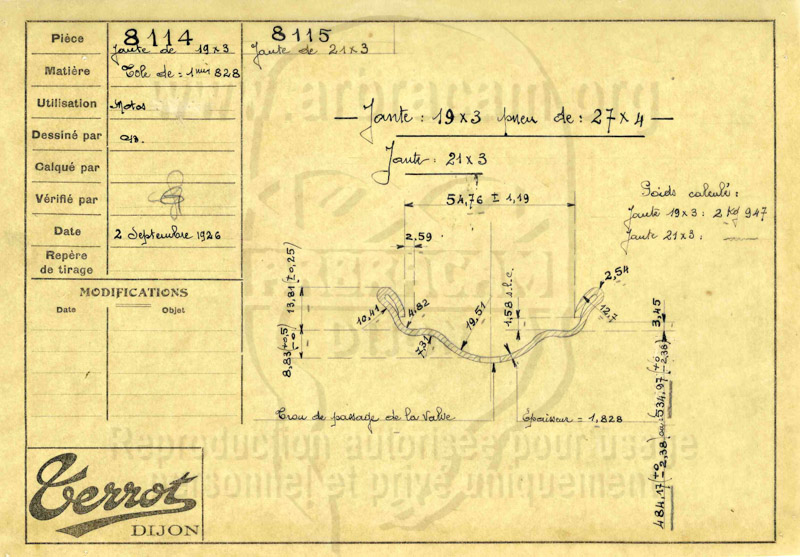 Pièce
8114
Jante de 19x3
8115
Jante de 21x3
Matière
Tole de = 1 mm 828
Utilisation
Motos
Dessiné par
Calqué par
Vérifié par
Date
2 Septembre 1926
Repère
de tirage
MODIFICATIONS
Date
Objet
www.arbracam.org
— Jante : 19x3 pneu de : 27x4 —
Jante : 21x3
54,76 ± 1,19
Poids calculé :
Jante 19x3 : 2 Kg 947
Jante 21x3 :
2,59
13,81 (± 0,25)
8,83 (+0,5 -0)
10,41
4,82
7,31
19,51
1,58 s.l.c.
2,54
12,7
3,45
484,17 (+0 -2,38) ou 534,97 (+0 -2,38)
ARBRACAM
DIJON
Trou de passage de la Valve
Épaisseur = 1,828
Reproduction autorisée pour usage
personnel et privé uniquement
Terrot
DIJON